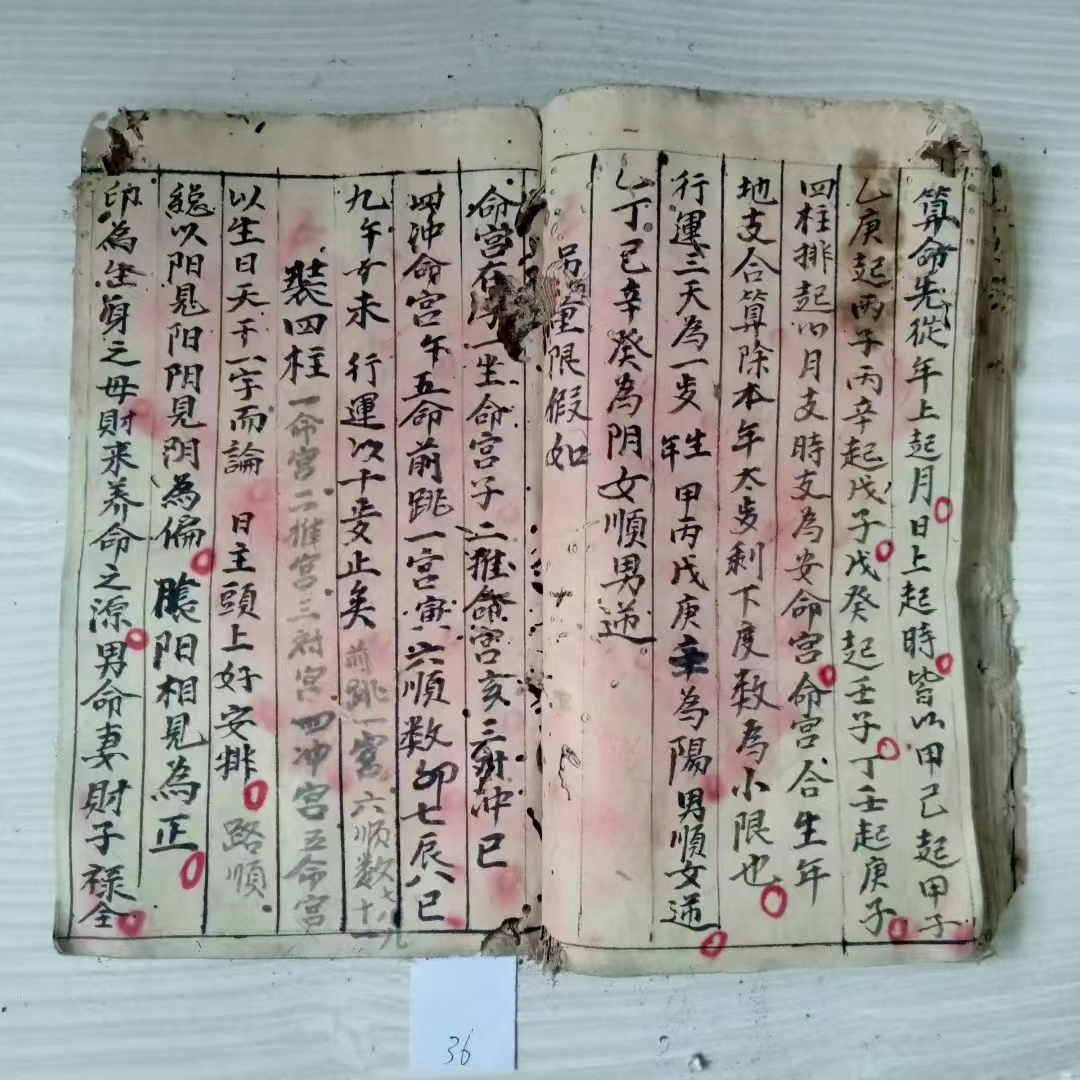 算命先從年上起月日上起時皆以甲己起甲子
乙庚起丙子丙辛起戊子戊癸起壬子丁壬起庚子
四柱排起以月支時支為安命宮命宮合生年
地支合算除本年太岁剩下度数為小限也
行運三天為一岁生年甲丙戊庚為陽男順女逆
乙丁己辛癸為阴女順男逆
重限假如
命宮在 一坐命宮子二推命宮亥三對冲巳
四沖命宮午五命前跳一宮寅六順数卯七辰八巳
九午十未 行運以十 止矣 前跳一宮六順数七八九十
裝四柱一命宮二推宮三对宮四冲宮五命宮
以生日天干一字而論 日主頭上好安排 路順
總以阳見阳阴見阴為偏 阳相見為正
印為生身之母財来养命之源男命妻財子禄全
36